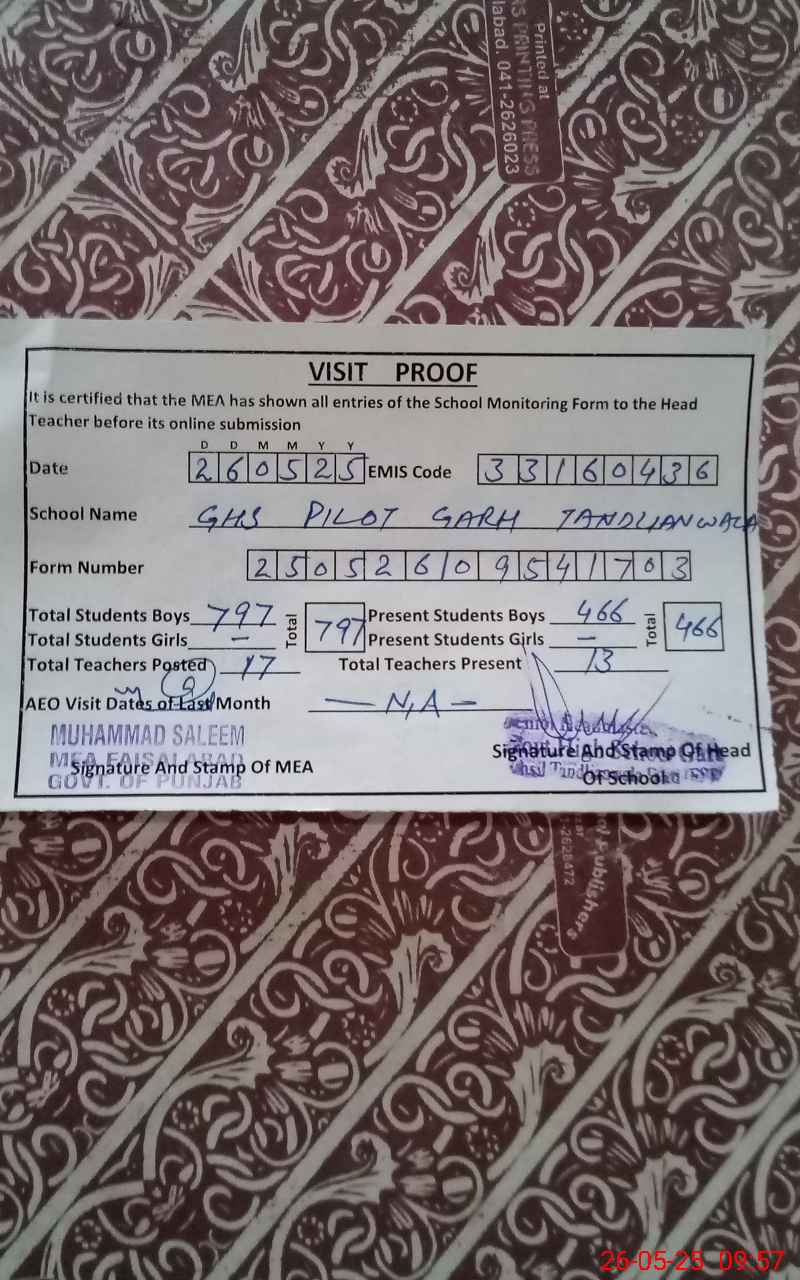 Printed at
S PRINTING PRESS
labad 041-2626023
VISIT PROOF
It is certified that the MEA has shown all entries of the School Monitoring Form to the Head
Teacher before its online submission
D D M M Y Y
Date 260525 EMIS Code 33160436
School Name GHS PILOT GARH TANDLIANWALA
Form Number 25052609541703
Total Students Boys 797 Total 797 Present Students Boys 466 Total 466
Total Students Girls — Present Students Girls —
Total Teachers Posted 17 Total Teachers Present 13
AEO Visit Dates of Last Month — N,A —
MUHAMMAD SALEEM
MEA FAISALABAD
GOVT. OF PUNJAB
Signature And Stamp Of MEA
Signature And Stamp Of Head
Of School
Publishers
2628472
26-05-25 09:57